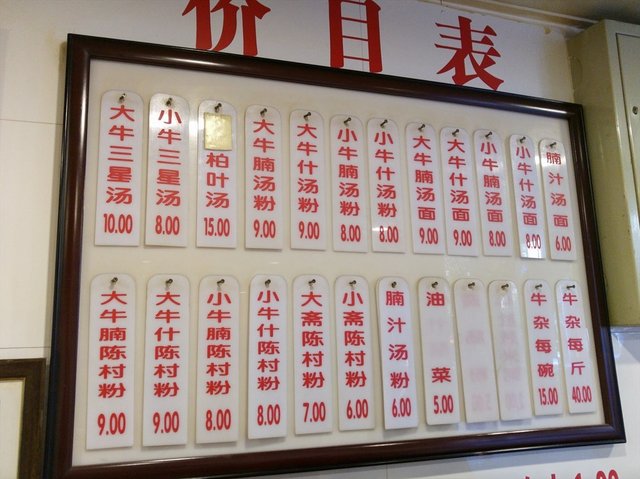 价目表
大牛三星汤 10.00
小牛三星汤 8.00
柏叶汤 15.00
大牛腩汤粉 9.00
大牛什汤粉 9.00
小牛腩汤粉 8.00
小牛什汤粉 8.00
大牛腩汤面 9.00
大牛什汤面 9.00
小牛腩汤面 8.00
小牛什汤面 8.00
腩汁汤面 6.00
大牛腩陈村粉 9.00
大牛什陈村粉 9.00
小牛腩陈村粉 8.00
小牛什陈村粉 8.00
大斋陈村粉 7.00
小斋陈村粉 6.00
腩汁汤粉 6.00
油菜 5.00
牛杂每碗 15.00
牛杂每斤 40.00